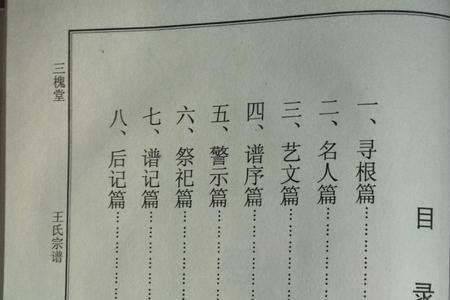 目录
一、寻根篇…………
二、名人篇…………
三、艺文篇…………
四、谱序篇…………
五、警示篇…………
六、祭祀篇…………
七、谱记篇…………
八、后记篇…………
三槐堂
王氏宗谱